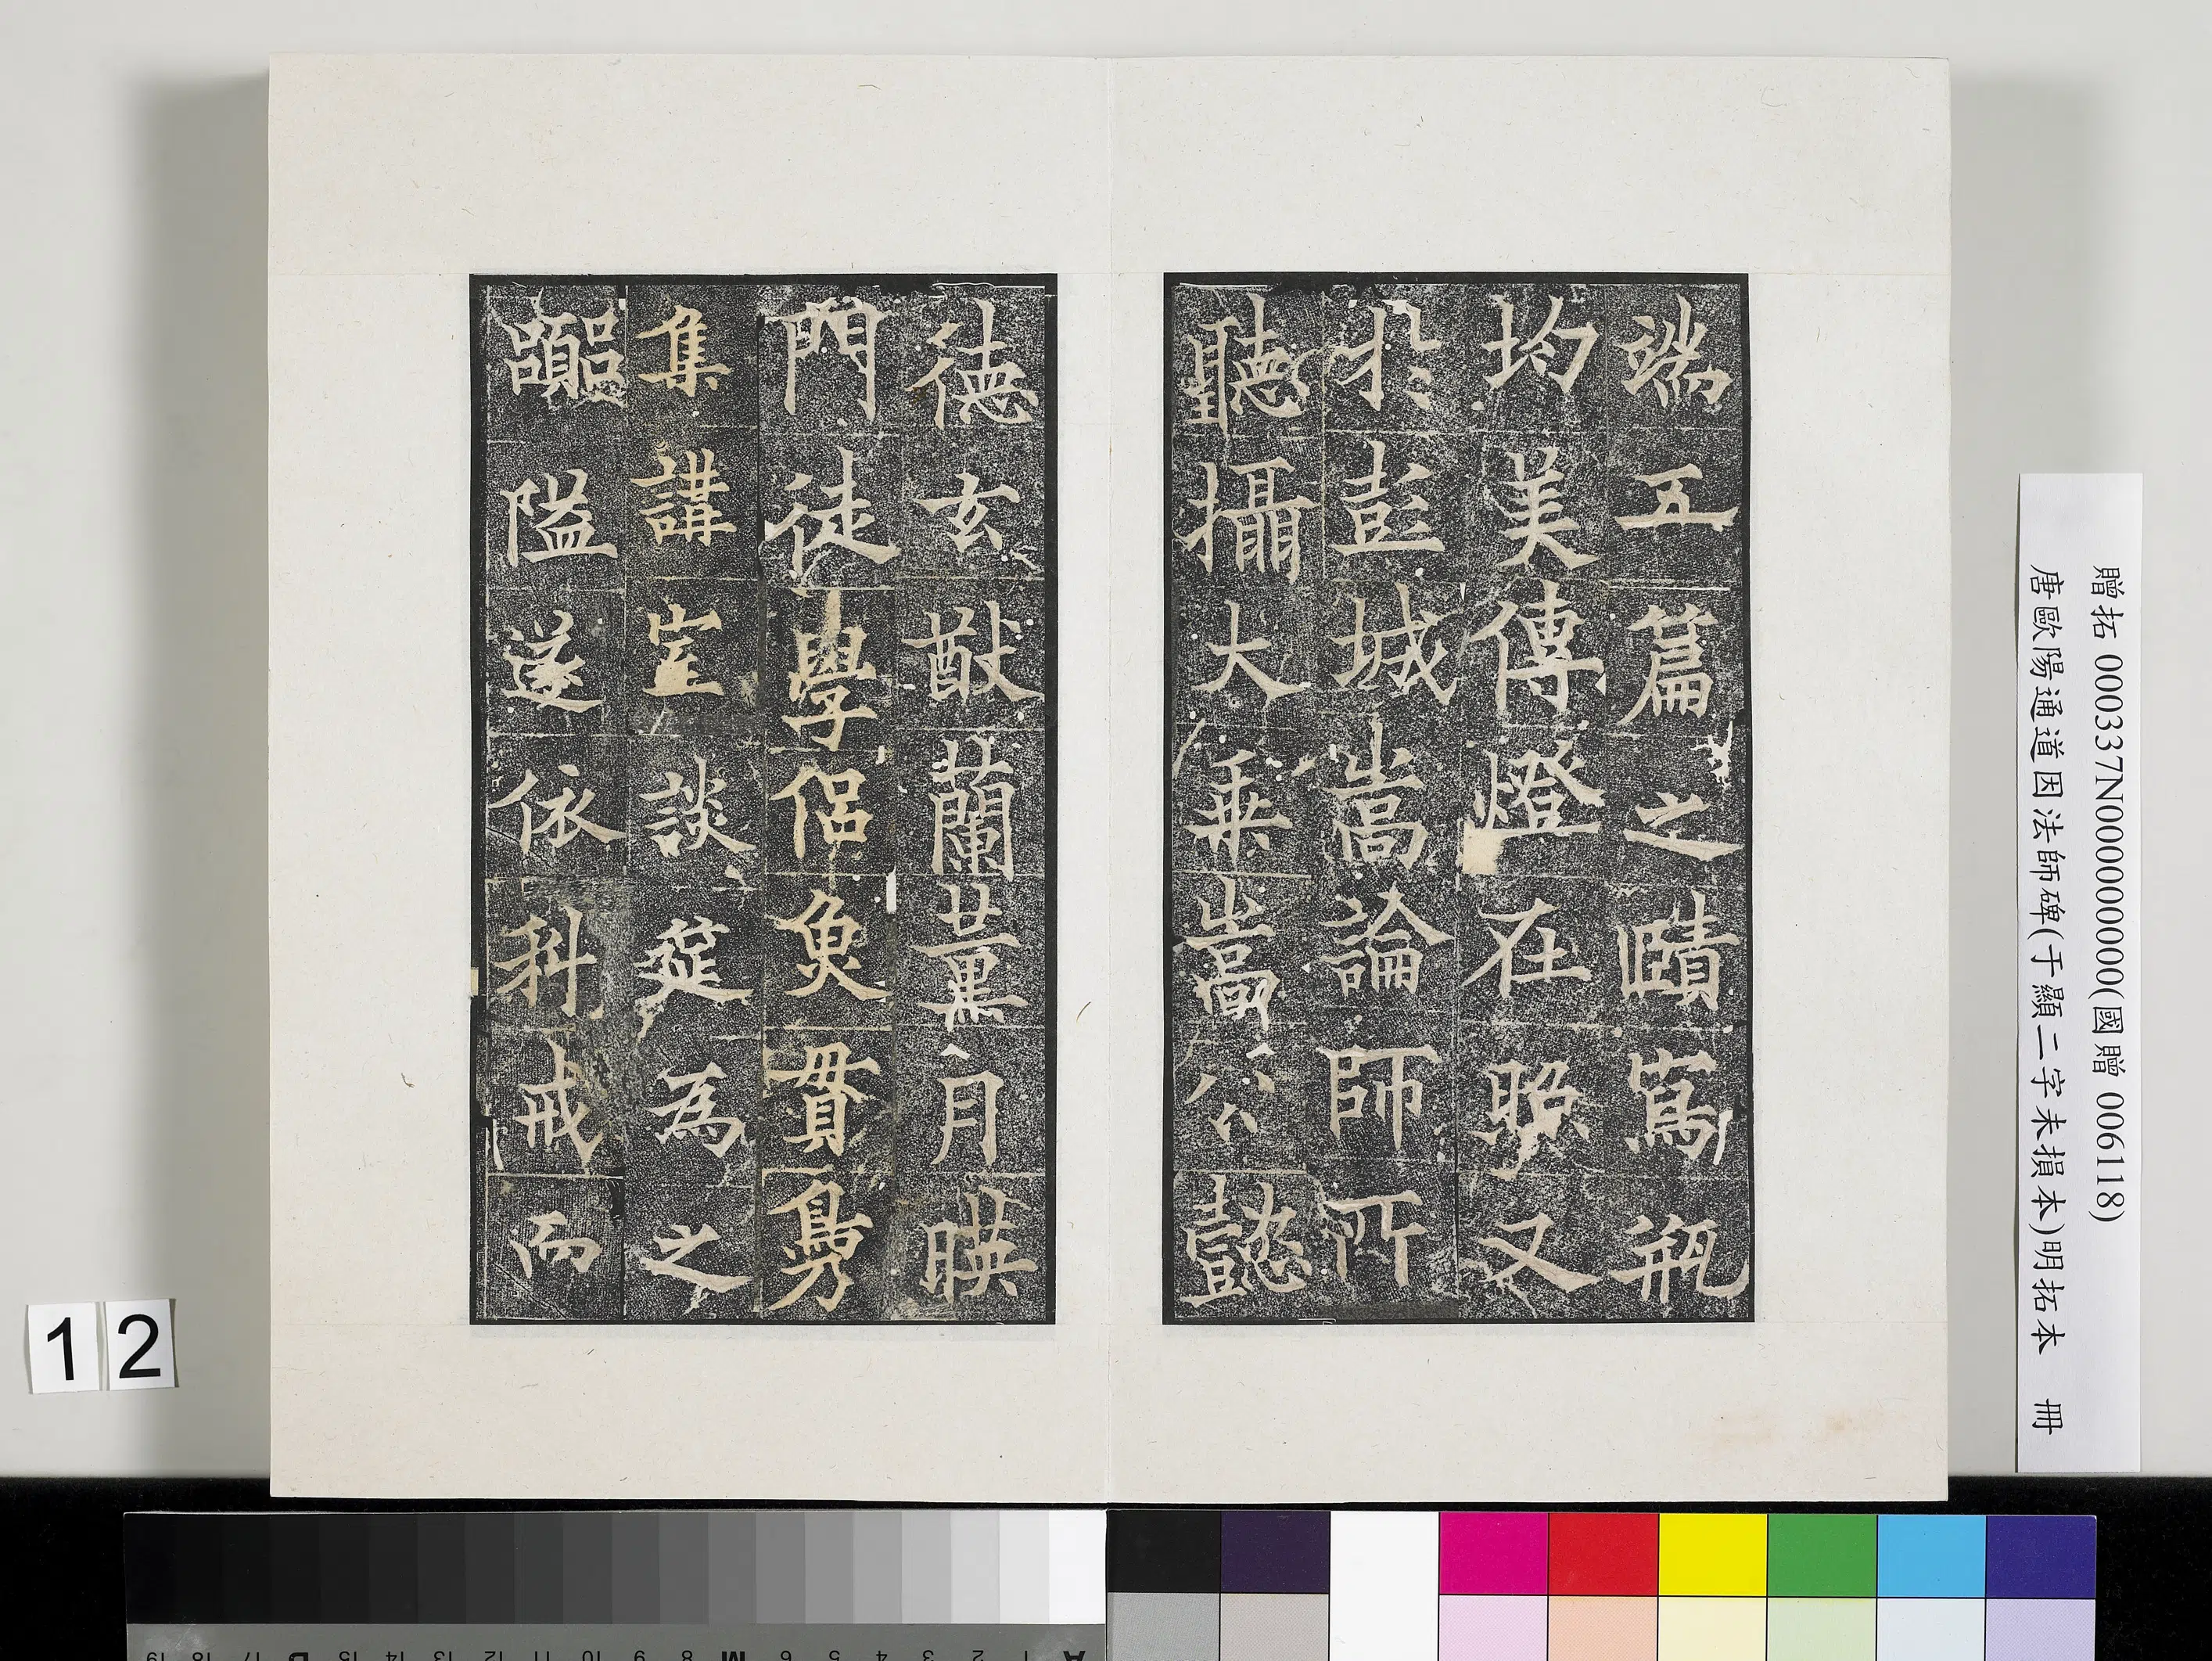 端五篇之賾寫瓶
均美傳燈在照又
於彭城嵩論師所
聽攝大乘嵩公懿
德玄猷蘭薰月暎
門徒學侶魚貫鳧
集講豈談筵為之
嚻隘遂依科戒而
贈拓 000337N000000000(國贈 006118)
唐歐陽通道因法師碑(于顯二字未損本)明拓本 冊
12
A 1 2 3 4 5 6 M 8 9 10 11 12 13 14 15 B 17 18 19